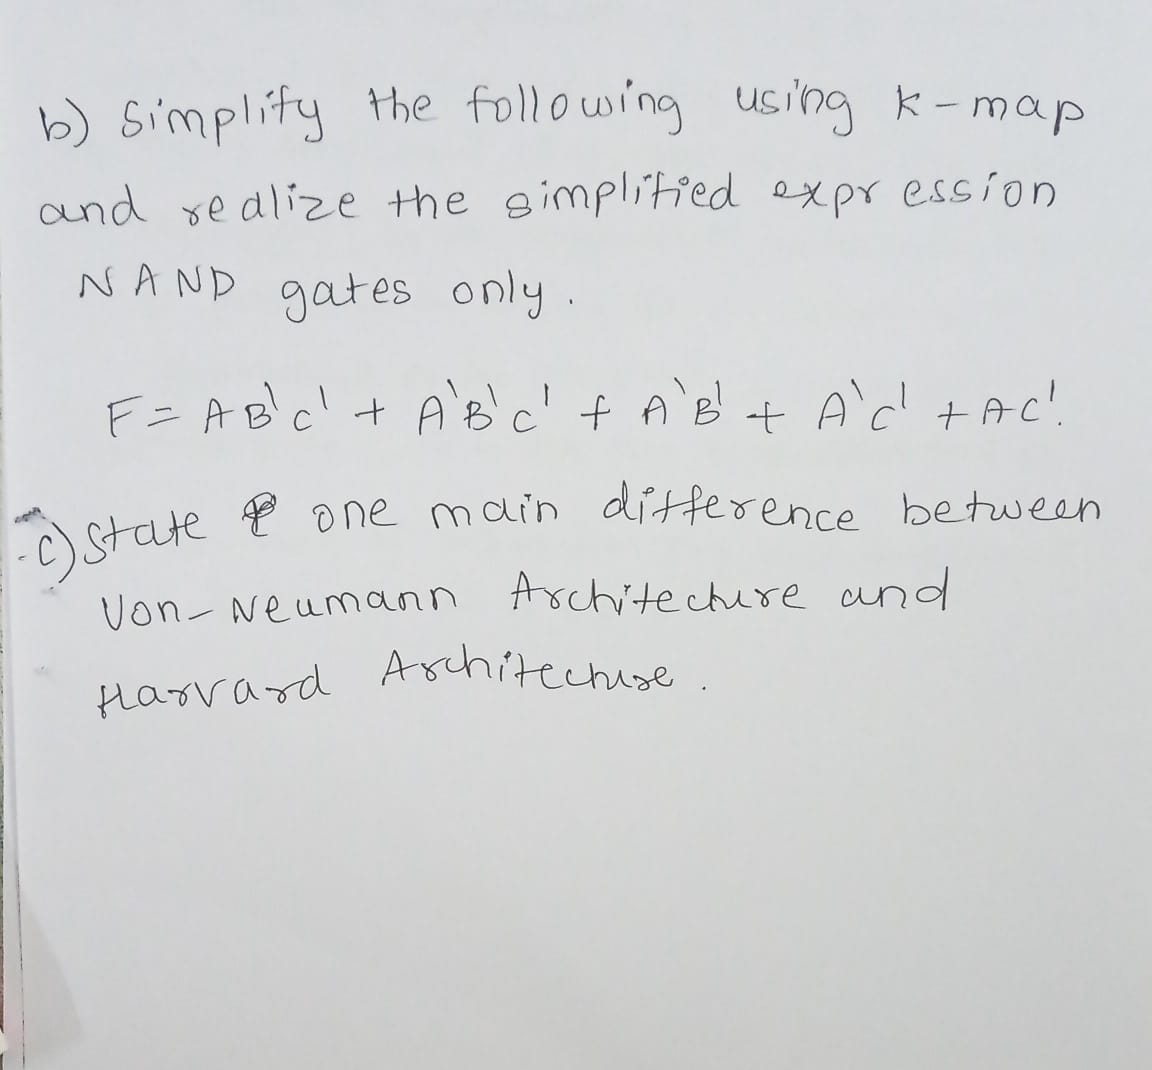 b) Simplify the following using k-map
and realize the simplified expression
NAND gates only.
F = AB'C' + A'B'C' + A'B' + A'C' + AC'.
c) State one main difference between
Von-Neumann Architecture and
Harvard Architecture.